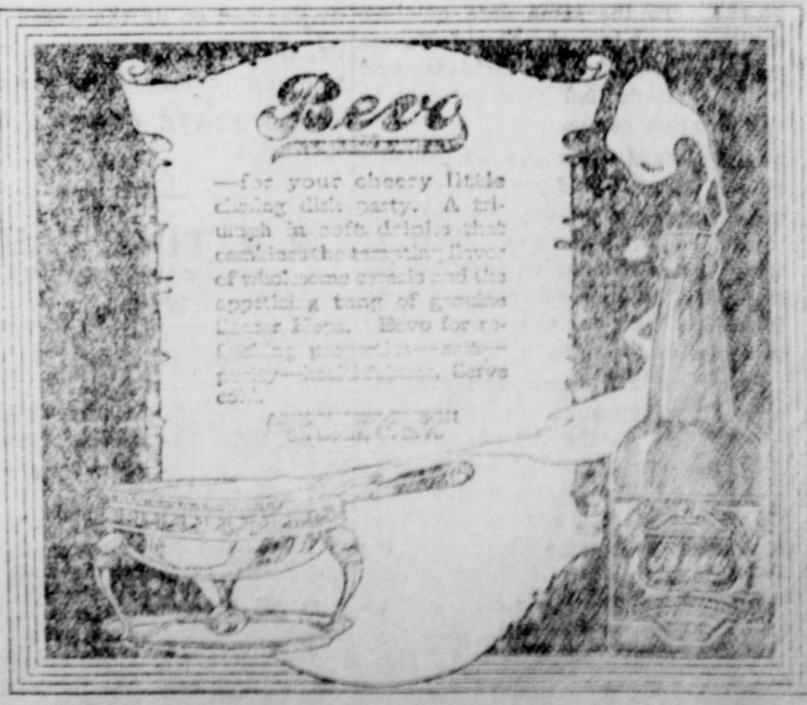 Bevo
—for your cheery little
chafing dish party. A tri-
umph in soft drinks that
combines the tempting flavor
of wholesome cereals and the
appetizing tang of genuine
Hops. Bevo for re-
freshing properties—
purity— Serve
cold.
ANHEUSER-BUSCH
St. Louis, U.S.A.
Bevo